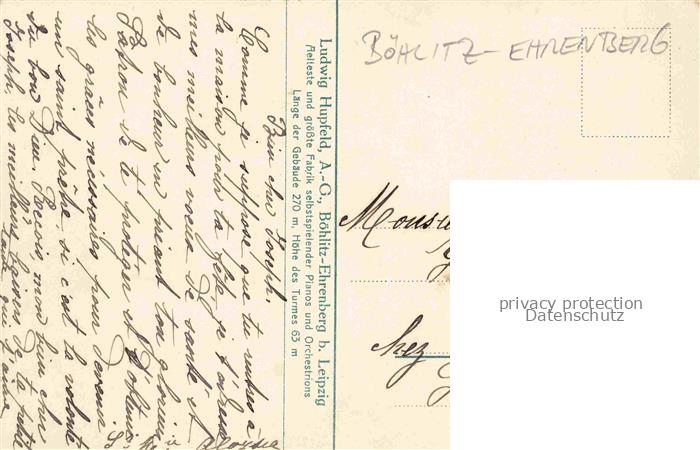 BÖHLITZ-EHRENBERG
Ludwig Hupfeld, A.-G., Böhlitz-Ehrenberg b. Leipzig
Aelteste und größte Fabrik selbstspielender Pianos und Orchestrions
Länge der Gebäude 270 m, Höhe des Turmes 63 m
Bien cher Joseph.
Comme je suppose que tu rentres à
la maison pour ta fête, je t'adresse
mes meilleurs voeux de santé et
de bonheur en priant ton glorieux
Patron de te protéger et d'obtenir
les grâces nécessaires pour devenir
un saint prêtre, si c'est la volonté
du bon Dieu. Reçois mon bien cher
Joseph, les meilleurs baisers de ta
qui t'aime
Monsieu
chez
privacy protection
Datenschutz